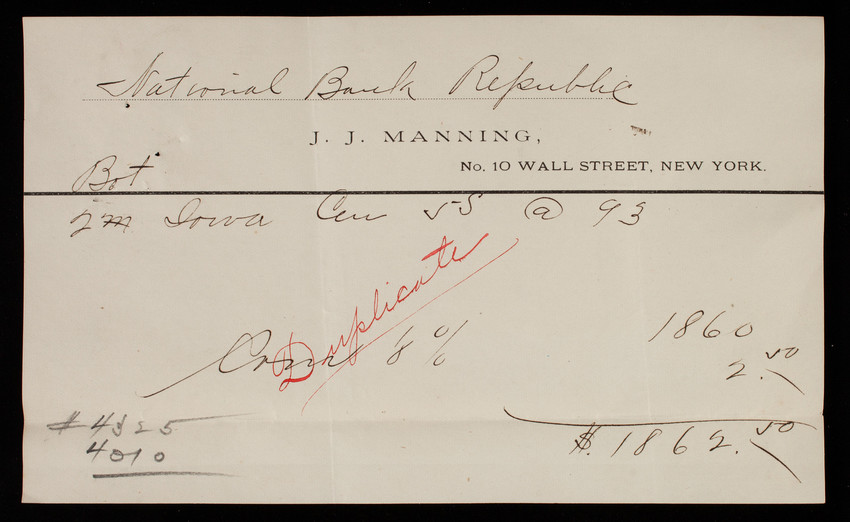 National Bank Republic
J. J. MANNING,
No. 10 WALL STREET, NEW YORK.
Bot
2m Iowa Cen 5s @ 93
Duplicate
1860
Com 1/8 %
2.50
$ 4325
4010
$. 1862.50